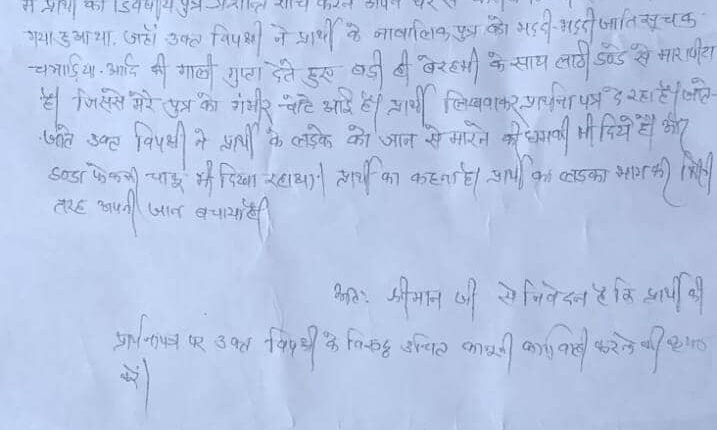 में प्रार्थी का पुत्र शौच करने अपने घर से
गया हुआ था, जहाँ उक्त विपक्षी ने प्रार्थी के नाबालिक पुत्र को भद्दी-भद्दी जाति सूचक
आदि की गाली गुप्ता देते हुए बडी ही बेरहमी के साथ लाठी डण्डे से मारा पीटा
है। जिससे मेरे पुत्र को गंभीर चोटे आई है। प्रार्थी लिखवाकर प्रार्थना पत्र दे रहा है। जाते-
जाते उक्त विपक्षी ने प्रार्थी के लडके को जान से मारने की धमकी भी दिये है। और
डण्डा फेककर चाकू भी दिखा रहा था। प्रार्थी का कहना है। प्रार्थी का लडका भाग की किसी
तरह अपनी जान बचाया है।
अतः श्रीमान जी से निवेदन है कि प्रार्थी की
प्रार्थनापत्र पर उक्त विपक्षी के विरुद्ध उचित कानूनी कार्यवाही करने की कृपा
करें।